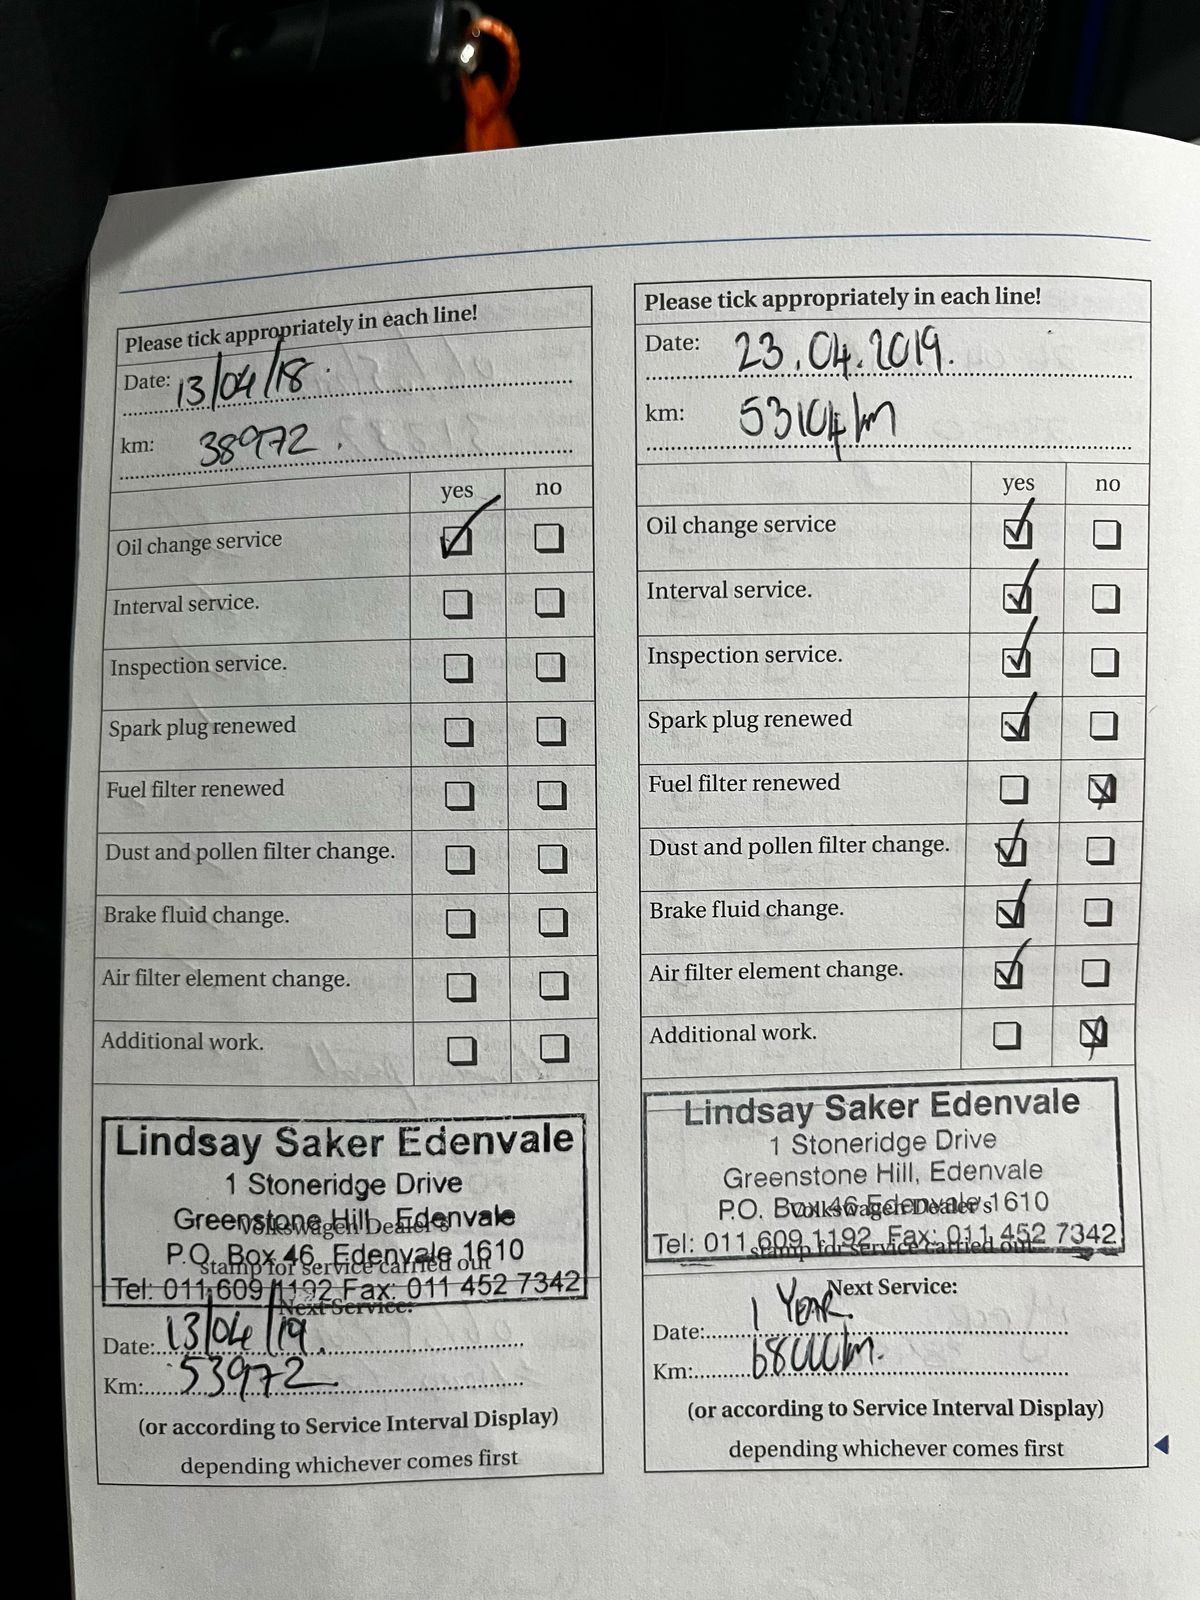 Please tick appropriately in each line!
Date: 13/04/18.
km: 38972.
yes no
Oil change service
Interval service.
Inspection service.
Spark plug renewed
Fuel filter renewed
Dust and pollen filter change.
Brake fluid change.
Air filter element change.
Additional work.
Lindsay Saker Edenvale
1 Stoneridge Drive
Greenstone Hill, Edenvale
Volkswagen Dealer's
P.O. Box 46, Edenvale 1610
stamp for service carried out
Tel: 011 609 1192 Fax: 011 452 7342
Next Service:
Date: 13/04/19.
Km: 53972.
(or according to Service Interval Display)
depending whichever comes first
Please tick appropriately in each line!
Date: 23.04.2019.
km: 53104km
yes no
Oil change service
Interval service.
Inspection service.
Spark plug renewed
Fuel filter renewed
Dust and pollen filter change.
Brake fluid change.
Air filter element change.
Additional work.
Lindsay Saker Edenvale
1 Stoneridge Drive
Greenstone Hill, Edenvale
P.O. Box 46 Edenvale 1610
Volkswagen Dealer's
Tel: 011 609 1192 Fax: 011 452 7342
stamp for service carried out
Next Service:
Date: 1 YEAR.
Km: 68000km.
(or according to Service Interval Display)
depending whichever comes first